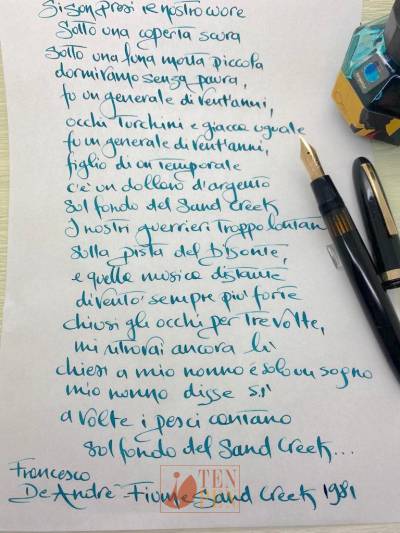 Si son presi il nostro cuore
Sotto una coperta scura
Sotto una luna morta piccola
dormivamo senza paura,
fu un generale di vent'anni,
occhi turchini e giacca uguale
fu un generale di vent'anni,
figlio di un temporale
c'è un dollaro d'argento
sul fondo del Sand Creek
I nostri guerrieri troppo lontan
sulla pista del bisonte,
e quella musica distante
diventò sempre più forte
chiusi gli occhi per tre volte,
mi ritrovai ancora lì
chiesi a mio nonno è solo un sogno
mio nonno disse sì
a volte i pesci cantano
sul fondo del Sand Creek...
Francesco
De Andrè Fiume Sand Creek 1981
TEN
PEN